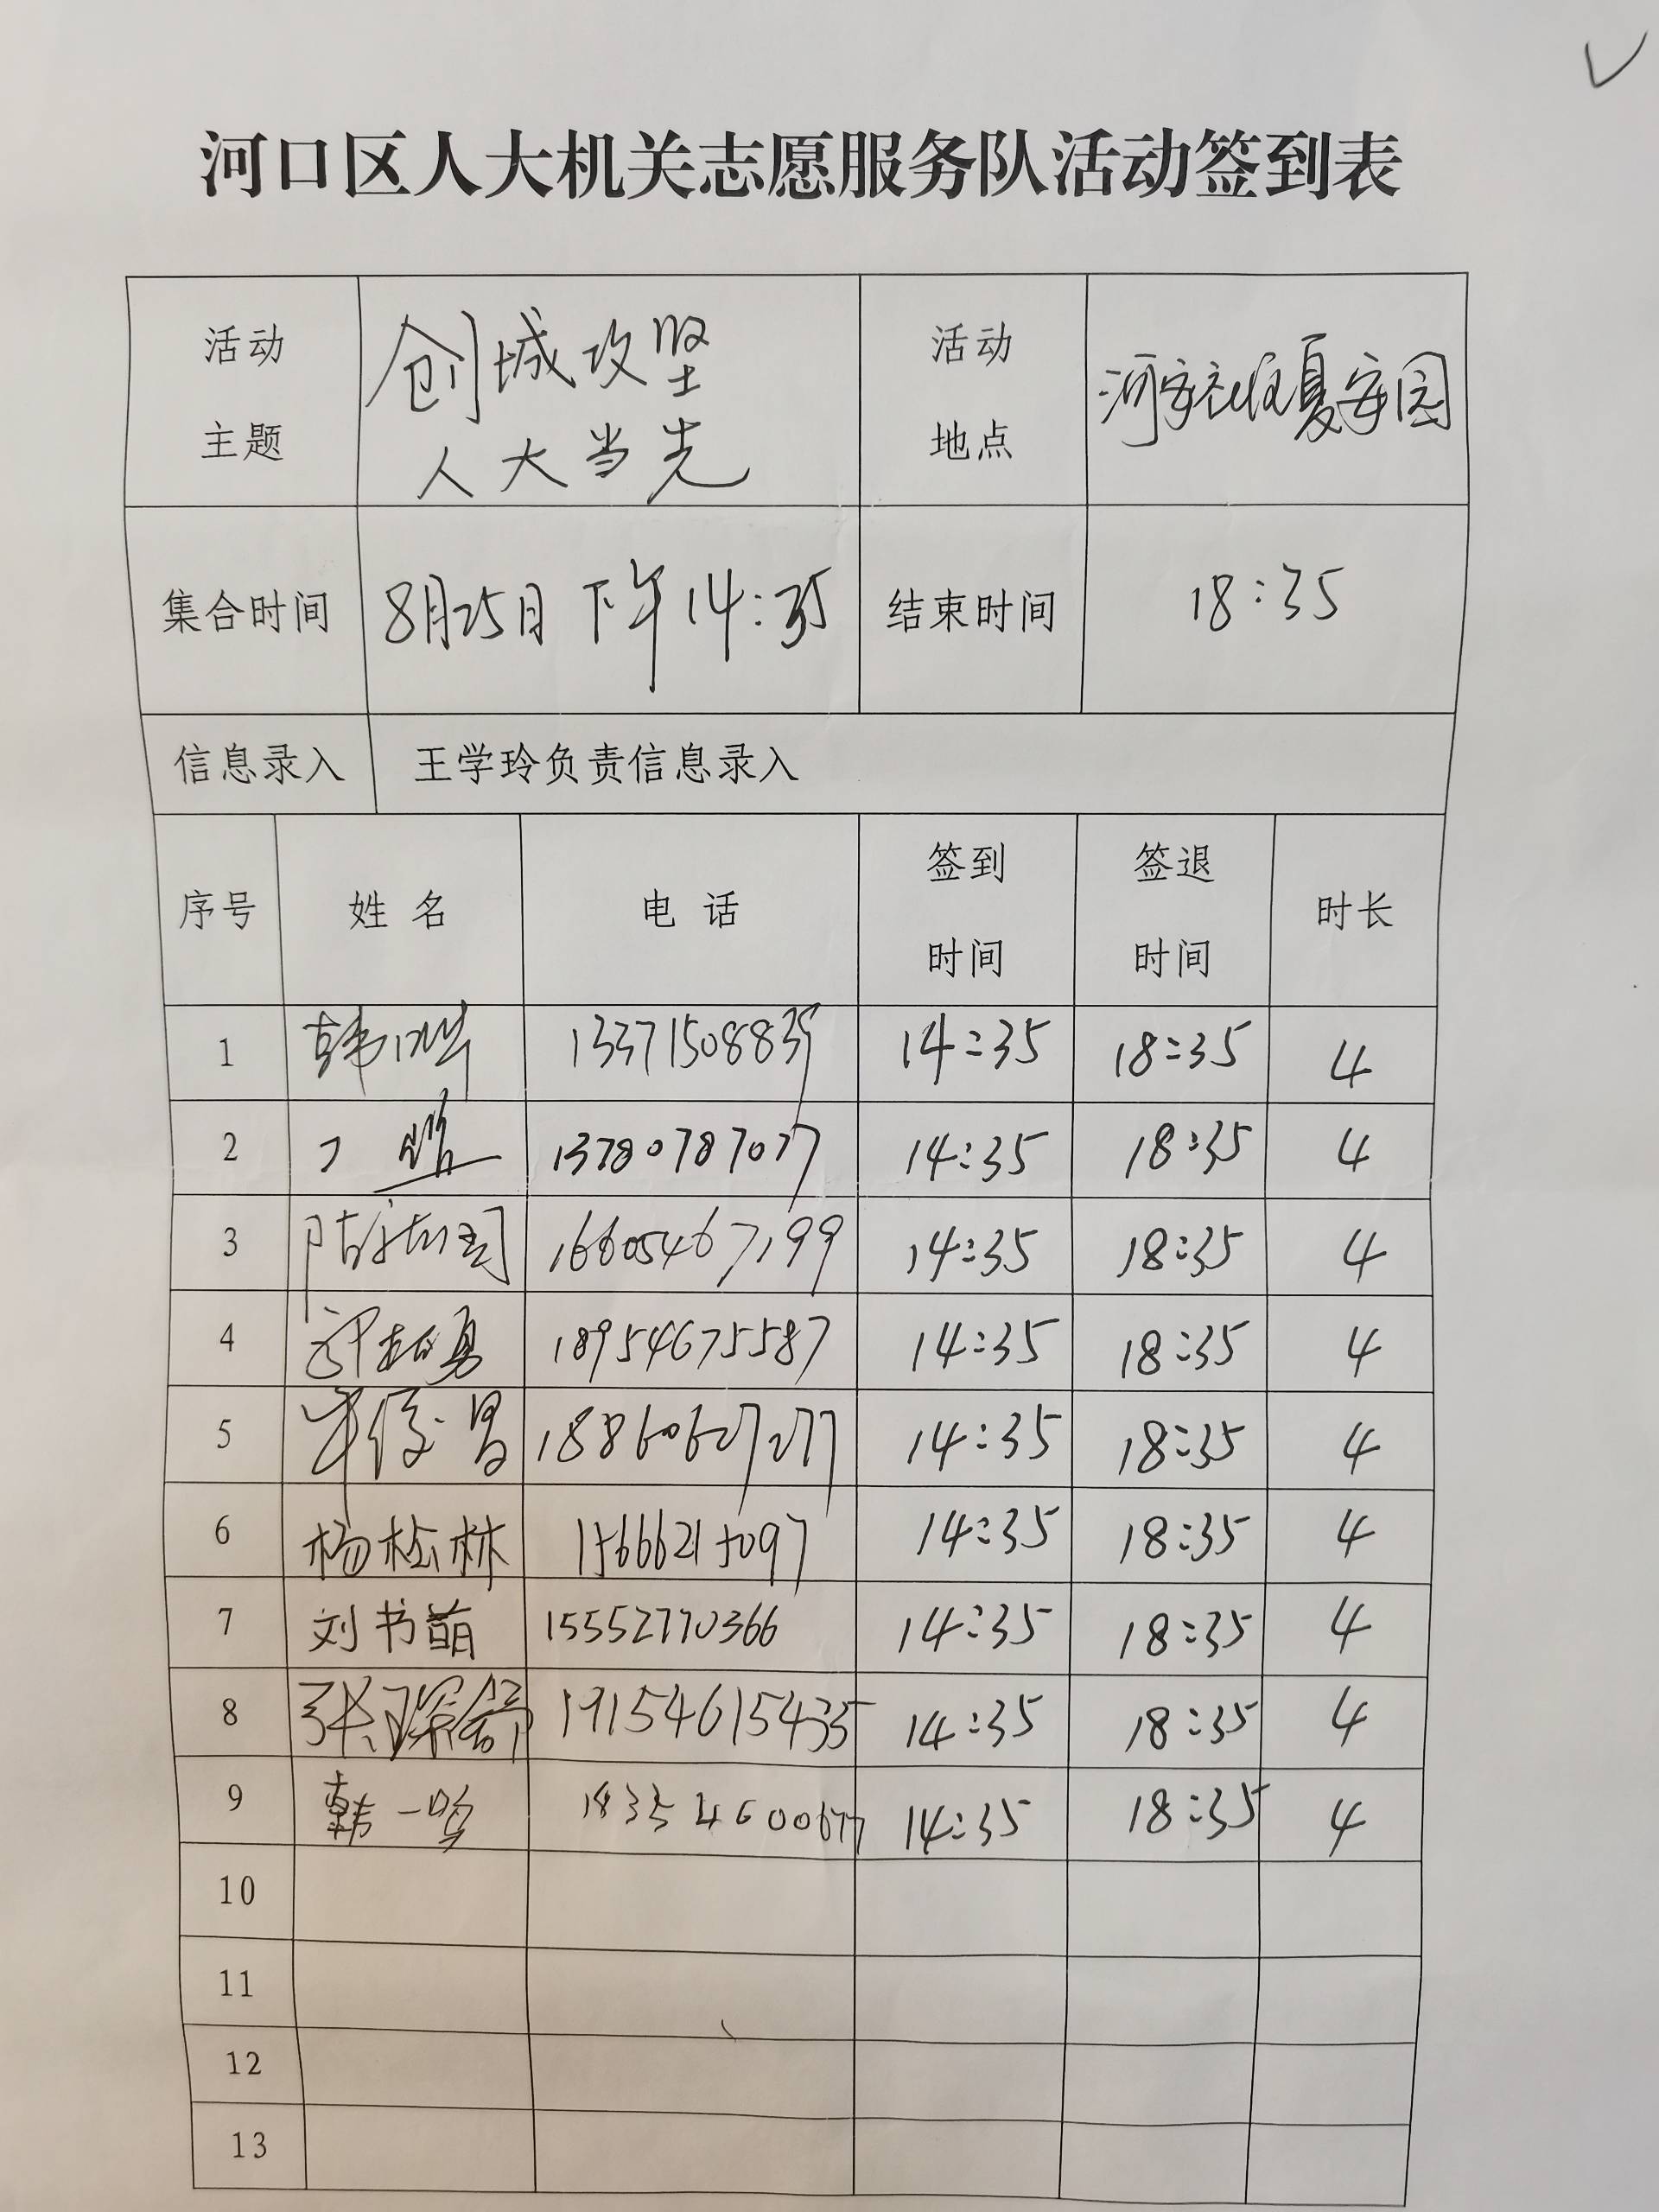 河口区人大机关志愿服务队活动签到表
活动主题 创城攻坚 人大当先 活动地点 河安社区夏安园
集合时间 8月25日 下午 14:35 结束时间 18:35
信息录入 王学玲负责信息录入
序号 姓名 电话 签到时间 签退时间 时长
1 13371508835 14:35 18:35 4
2 13780787077 14:35 18:35 4
3 16605467199 14:35 18:35 4
4 18954675587 14:35 18:35 4
5 14:35 18:35 4
6 杨松林 15666215097 14:35 18:35 4
7 刘书萌 15552770366 14:35 18:35 4
8 张琛舒 19154615435 14:35 18:35 4
9 韩一鸣 18354600677 14:35 18:35 4
10
11
12
13